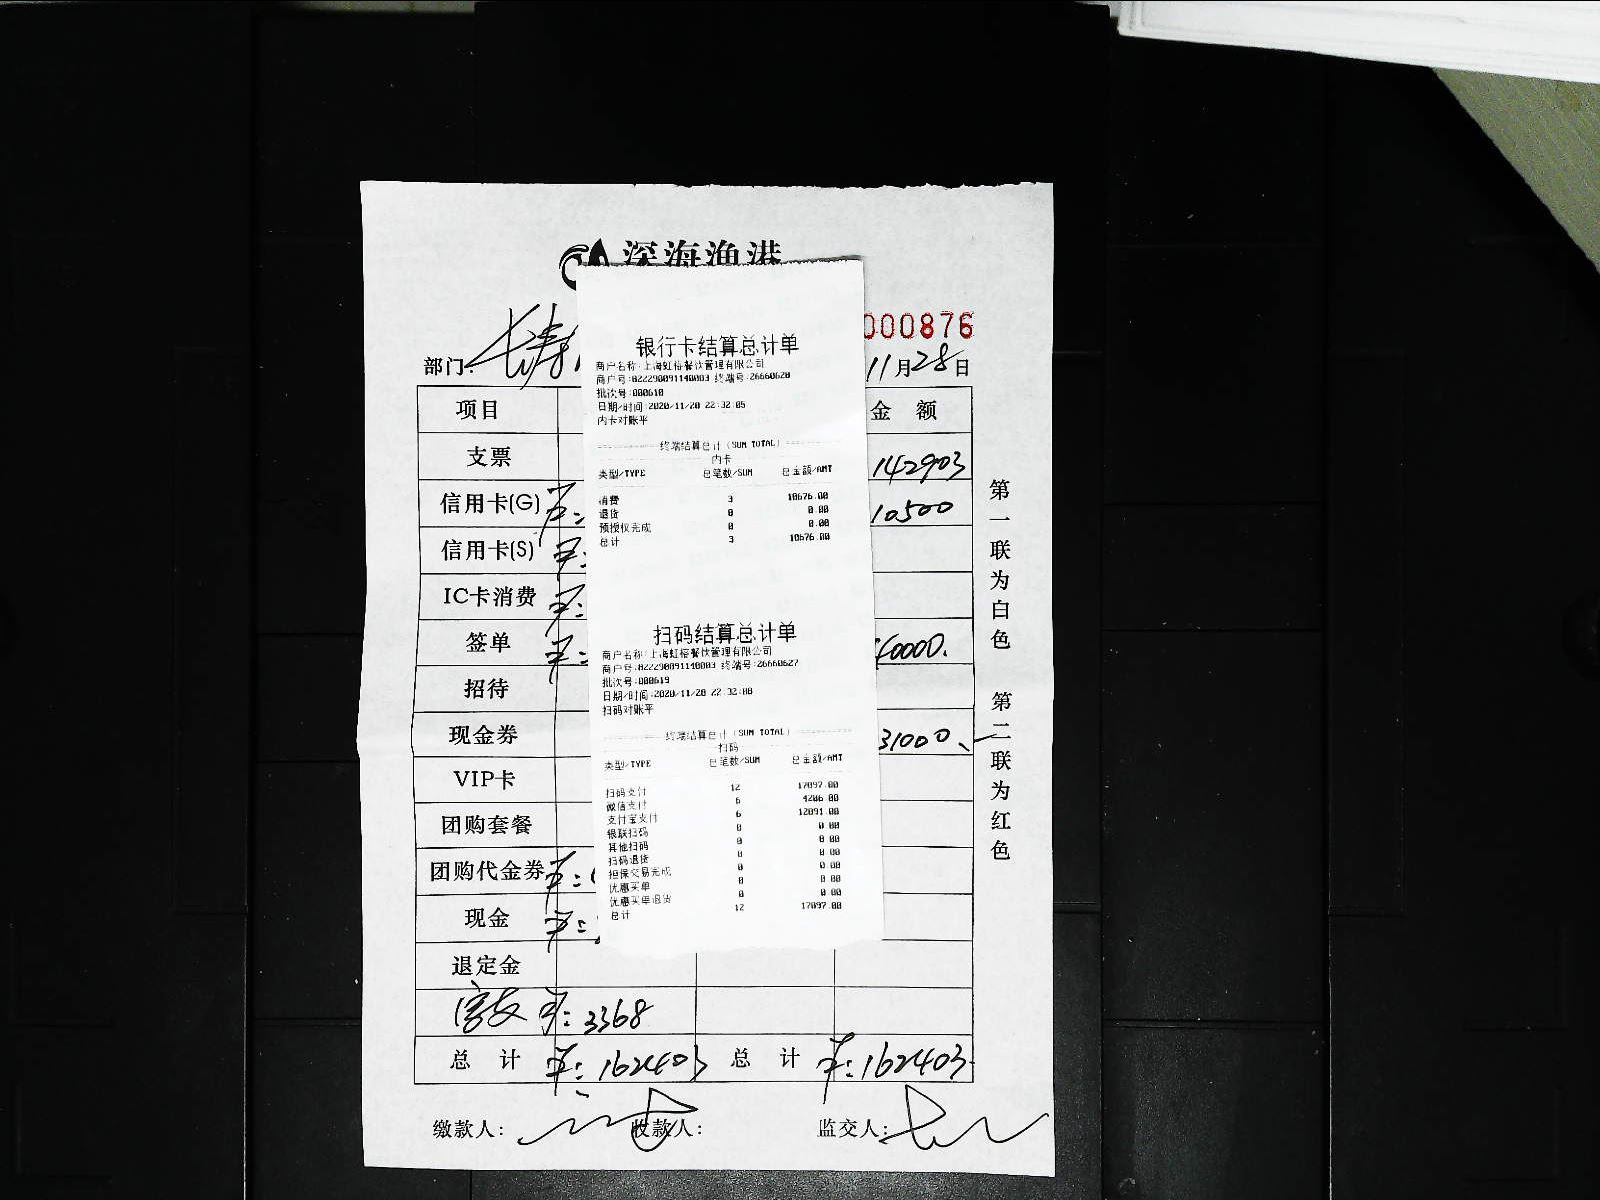 深海渔港
000876
部门: 11月28日
项目 金额
支票 142903
信用卡(G) 10500
信用卡(S)
IC卡消费
签单
招待
现金券 31000
VIP卡
团购套餐
团购代金券
现金
退定金
3368
总计 162403 总计 162403
缴款人: 收款人: 监交人:
第一联为白色 第二联为红色
银行卡结算总计单
商户名称:上海虹榕餐饮管理有限公司
商户号:822290091140003 终端号:26660628
批次号:000610
日期/时间:2020/11/28 22:32:05
内卡对账平
终端结算总计(SUM TOTAL)
内卡
类型/TYPE 总笔数/SUM 总金额/AMT
消费 3 10676.00
退货 0 0.00
预授权完成 0 0.00
总计 3 10676.00
扫码结算总计单
商户名称:上海虹榕餐饮管理有限公司
商户号:822290091140003 终端号:26660627
批次号:000619
日期/时间:2020/11/28 22:32:08
扫码对账平
终端结算总计(SUM TOTAL)
扫码
类型/TYPE 总笔数/SUM 总金额/AMT
扫码支付 12 17097.00
微信支付 6 4206.00
支付宝支付 6 12891.00
银联扫码 0 0.00
其他扫码 0 0.00
扫码退货 0 0.00
担保交易完成 0 0.00
优惠买单 0 0.00
优惠买单退货 0 0.00
总计 12 17097.00